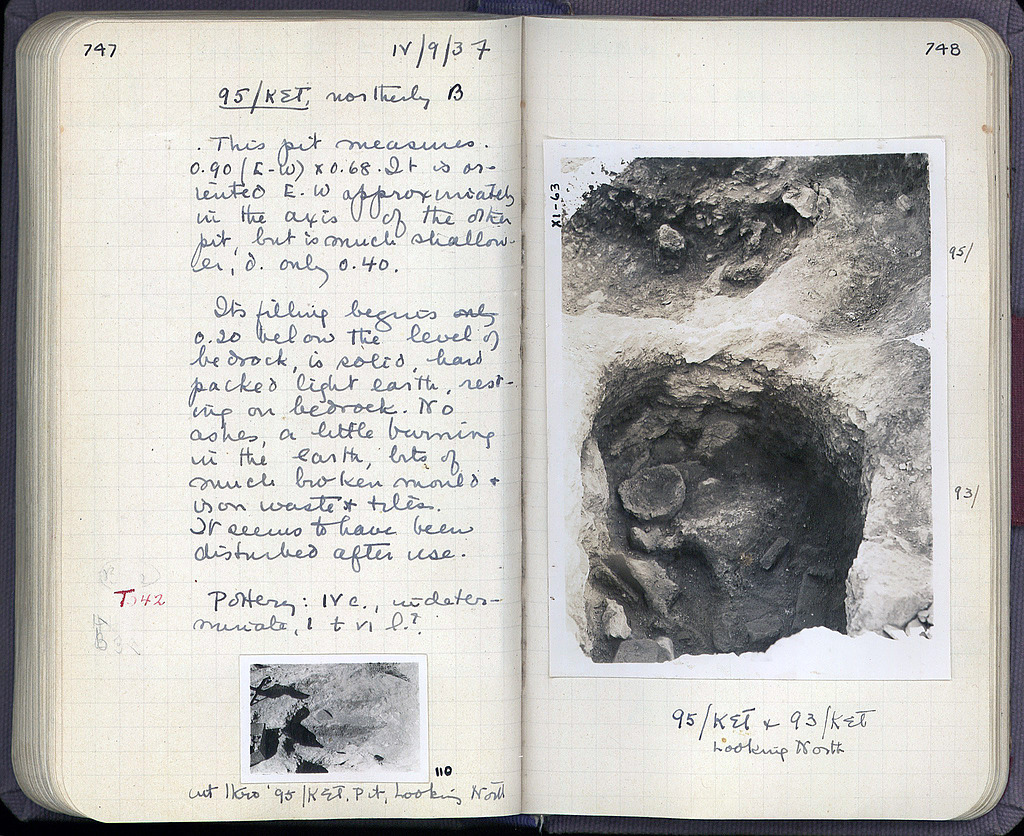 747
IV/9/37
95/KET, northerly B
. This pit measures.
0.90 (E-W) x 0.68. It is or-
iented E.W approximately
in the axis of the other
pit, but is much shallow-
er, d. only 0.40.
Its filling begins only
0.20 below the level of
bedrock, is solid, hard
packed light earth, rest-
ing on bedrock. No
ashes, a little burning
in the earth, bits of
much broken mould +
iron waste + tiles.
It seems to have been
disturbed after use.
T.42
Pottery: IV c., indeter-
minate, 1 + VI l.?
110
cut thro '95/KET, Pit, Looking North
748
XI-63
95/
93/
95/KET + 93/KET
Looking North